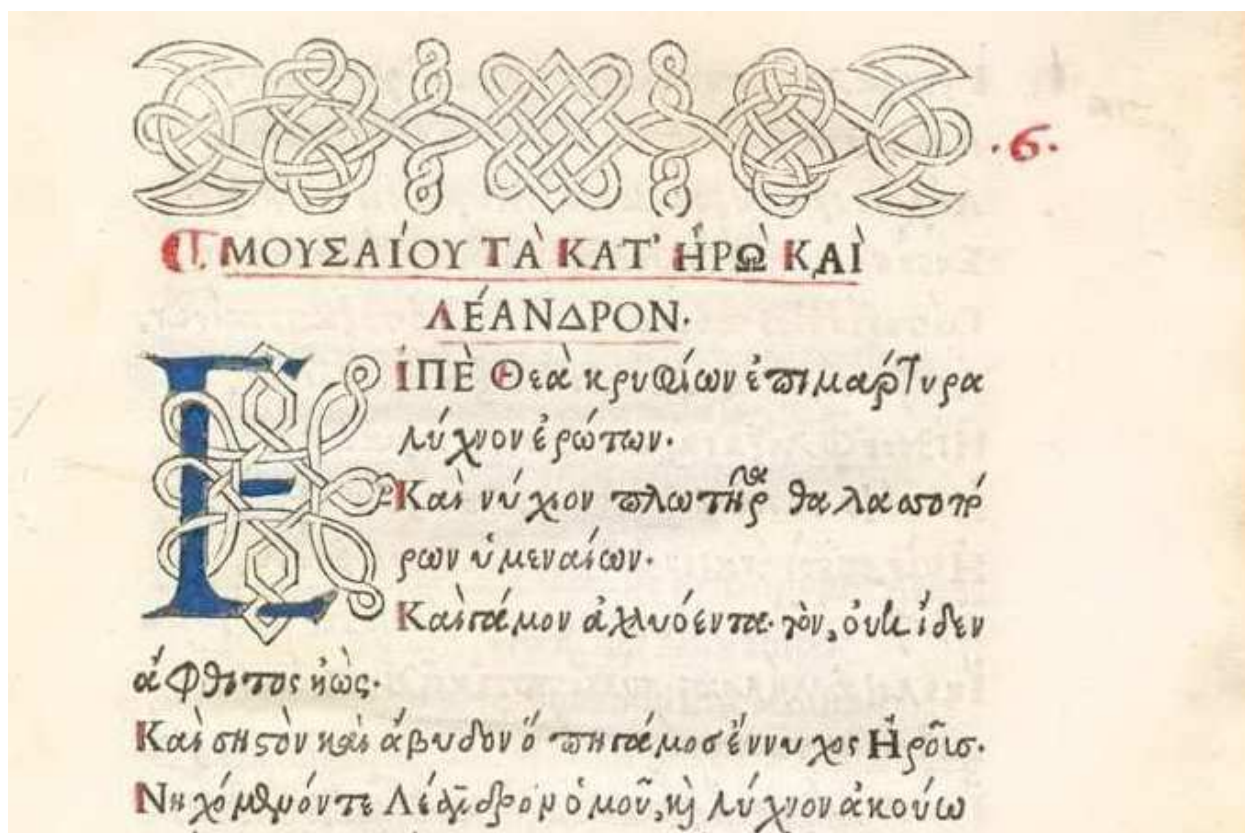 .6.
ΜΟΥΣΑΊΟΥ ΤᾺ ΚΑΤ' ἩΡῺ ΚΑῚ
ΛΈΑΝΔΡΟΝ.
ΕἸΠῈ Θεὰ κρυφίων ἐπιμάρτυρα
λύχνον ἐρώτων.
Καὶ νύχιον πλωτῆρα θαλασσοπό
ρων ὑμεναίων.
Καὶ γάμον ἀχλυόεντα. τὸν, οὐκ ἴδεν
ἄφθιτος ἠὼς.
Καὶ σηστὸν καὶ ἄβυδον ὅπη γάμος ἔννυχος Ἡροῦς.
Νηχόμενόν τε Λέανδρον ὁμοῦ, καὶ λύχνον ἀκούω